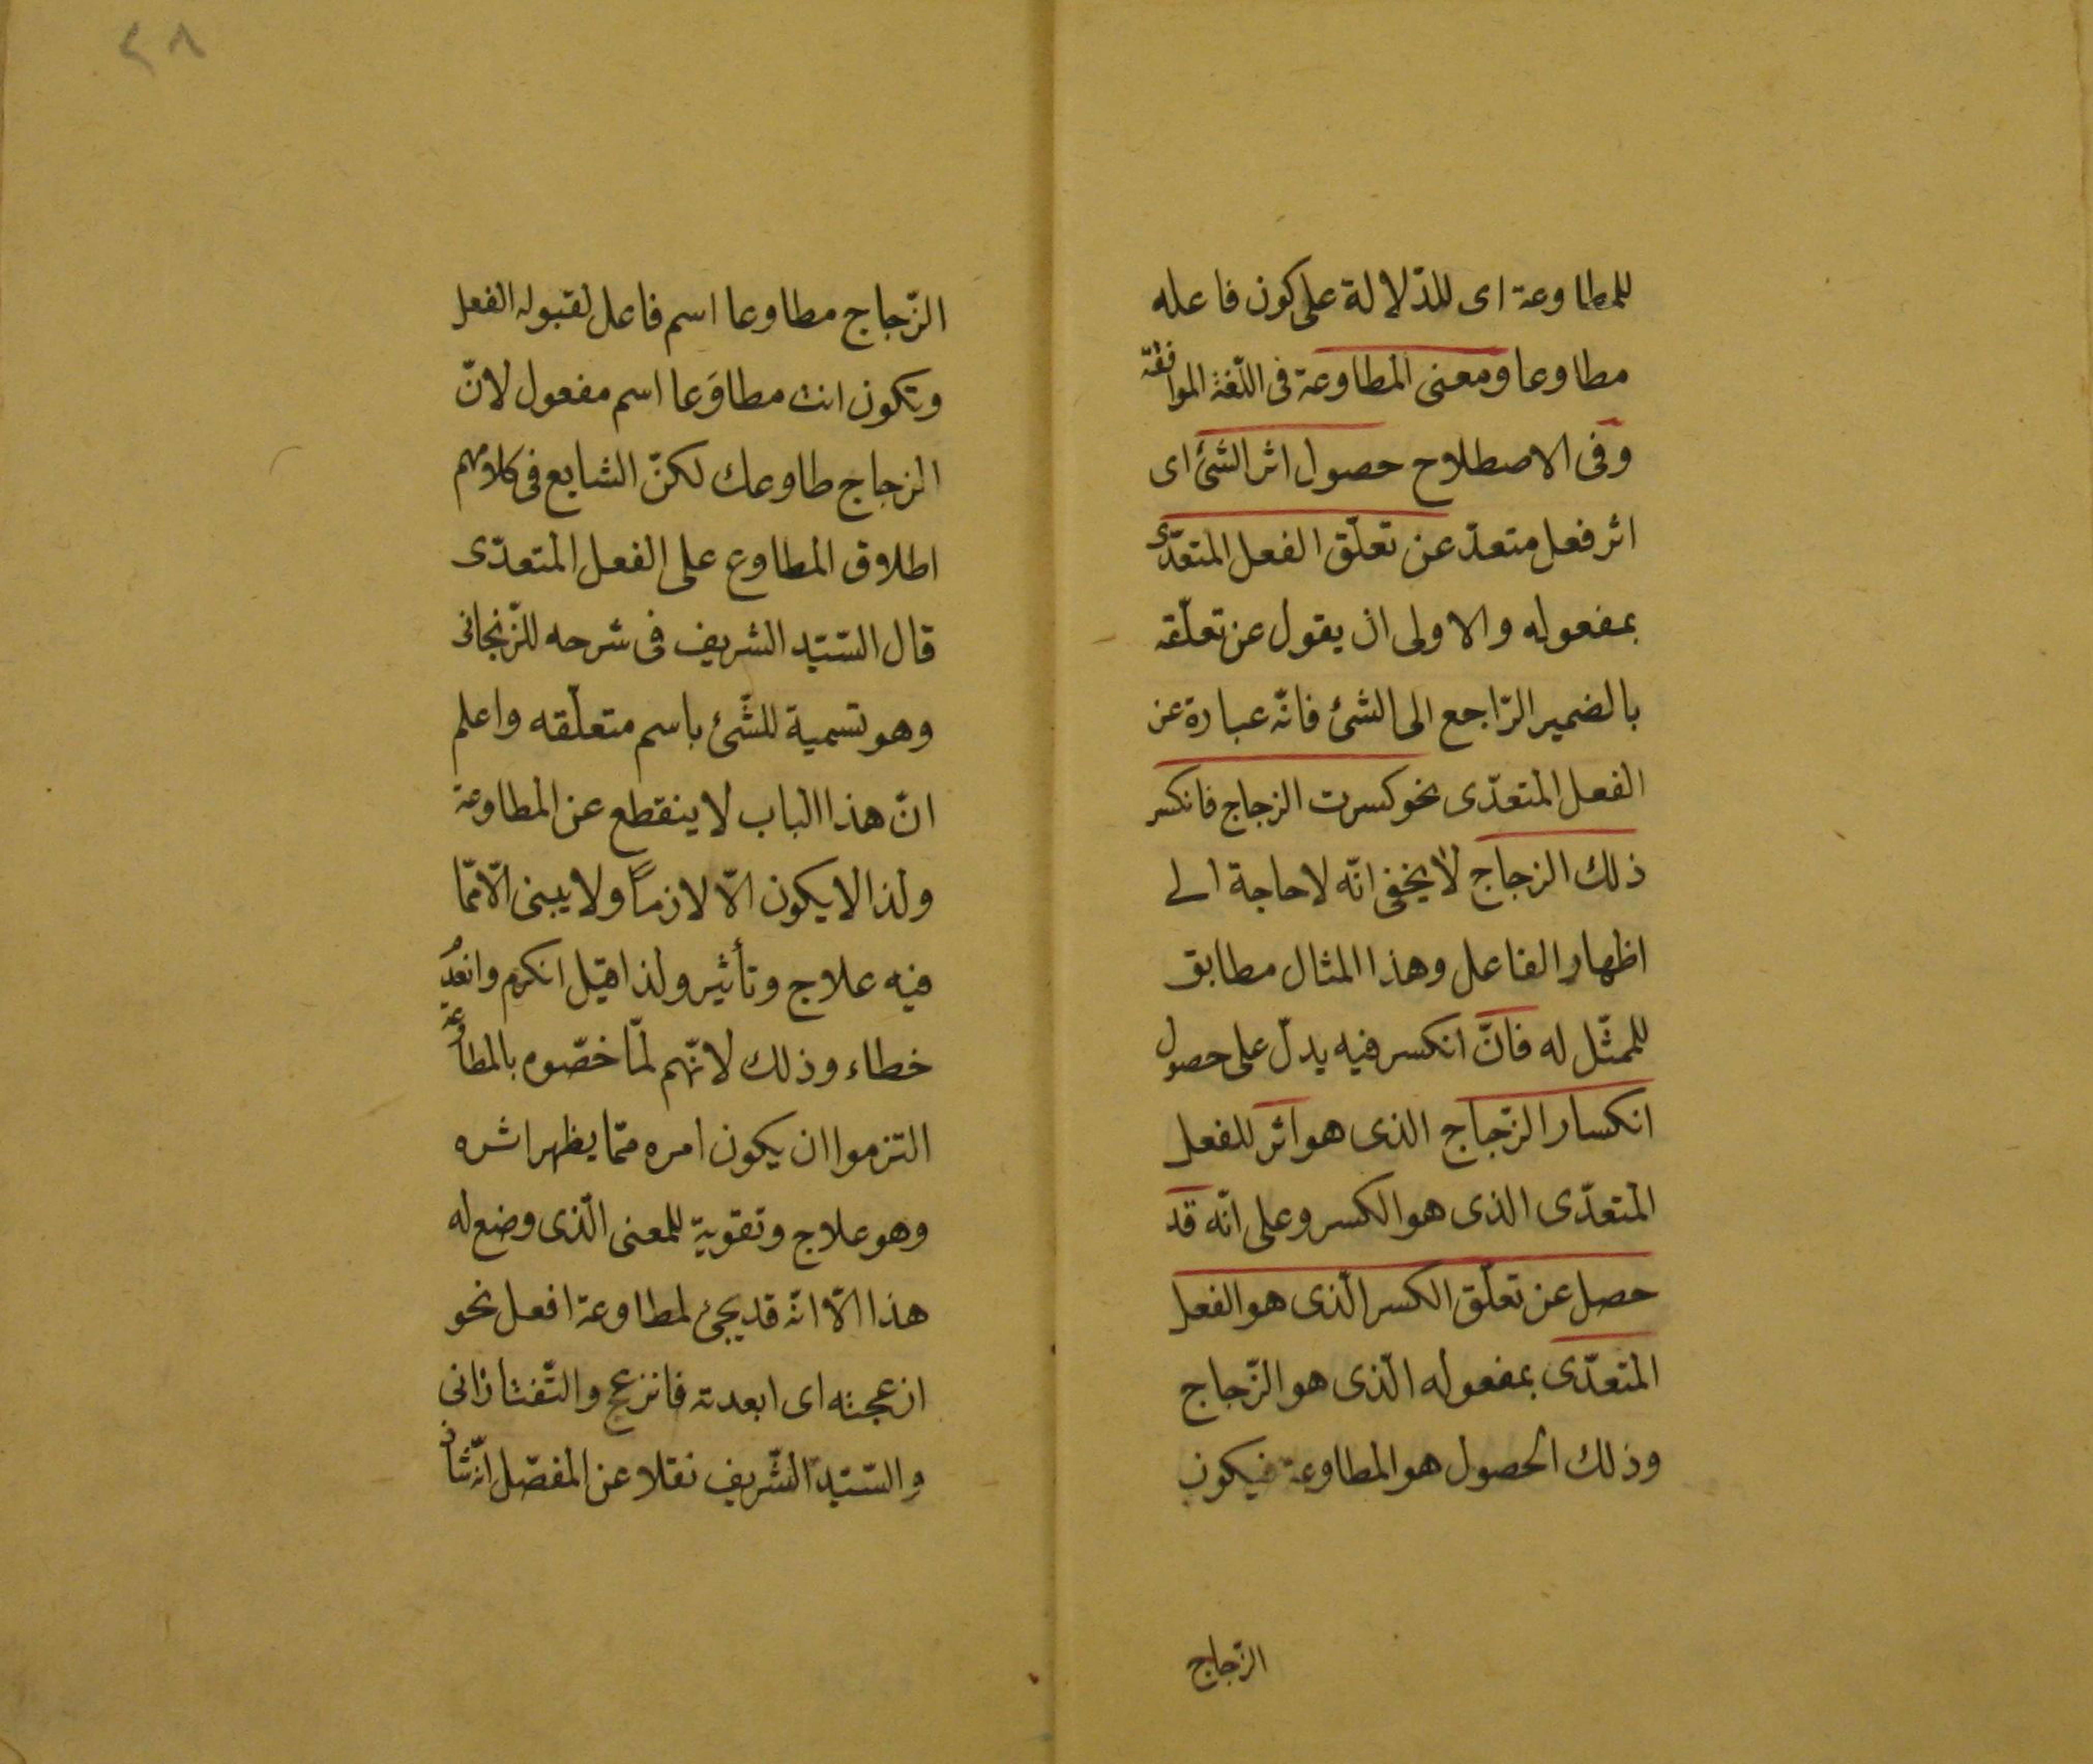 للمطاوعة اى للدّلالة على كون فاعله
مطاوعا ومعنى المطاوعة فى اللّغة الموافقة
وفى الاصطلاح حصول اثر الشئ اى
اثر فعل متعدّ عن تعلّق الفعل المتعدّى
بمفعوله والاولى ان يقول عن تعلّقه
بالضمير الرّاجع الى الشئ فانّه عبارة عن
الفعل المتعدّى نحو كسرت الزجاج فانكسر
ذلك الزجاج لا يخفى انّه لا حاجة الى
اظهار الفاعل وهذا المثال مطابق
للممثّل له فانّ انكسر فيه يدلّ على حصول
انكسار الزّجاج الذى هو اثر للفعل
المتعدّى الذى هو الكسر وعلى انّه قد
حصل عن تعلّق الكسر الّذى هو الفعل
المتعدّى بمفعوله الّذى هو الزّجاج
وذلك الحصول هو المطاوعة فيكون
الزجاج
٢٨
الزّجاج مطاوعا اسم فاعل لقبوله الفعل
وتكون انت مطاوَعا اسم مفعول لانّ
الزجاج طاوعك لكنّ الشايع فى كلامهم
اطلاق المطاوع على الفعل المتعدّى
قال السّيّد الشريف فى شرحه للزّنجانى
وهو تسمية للشّئ باسم متعلّقه واعلم
انّ هذا الباب لا ينقطع عن المطاوعة
ولذا لا يكون الّا لازماً ولا يبنى الّا ممّا
فيه علاج وتأثير ولذا قيل انكرم وانعدم
خطاء وذلك لانّهم لمّا خصّوه بالمطاوعة
التزموا ان يكون امره ممّا يظهر اثره
وهو علاج وتقوية للمعنى الّذى وضع له
هذا الّا انّه قد يجئ لمطاوعة افعل نحو
ازعجته اى ابعدته فانزعج والتّفتازانى
والسّيّد الشّريف نقلا عن المفصّل انّه شاذ